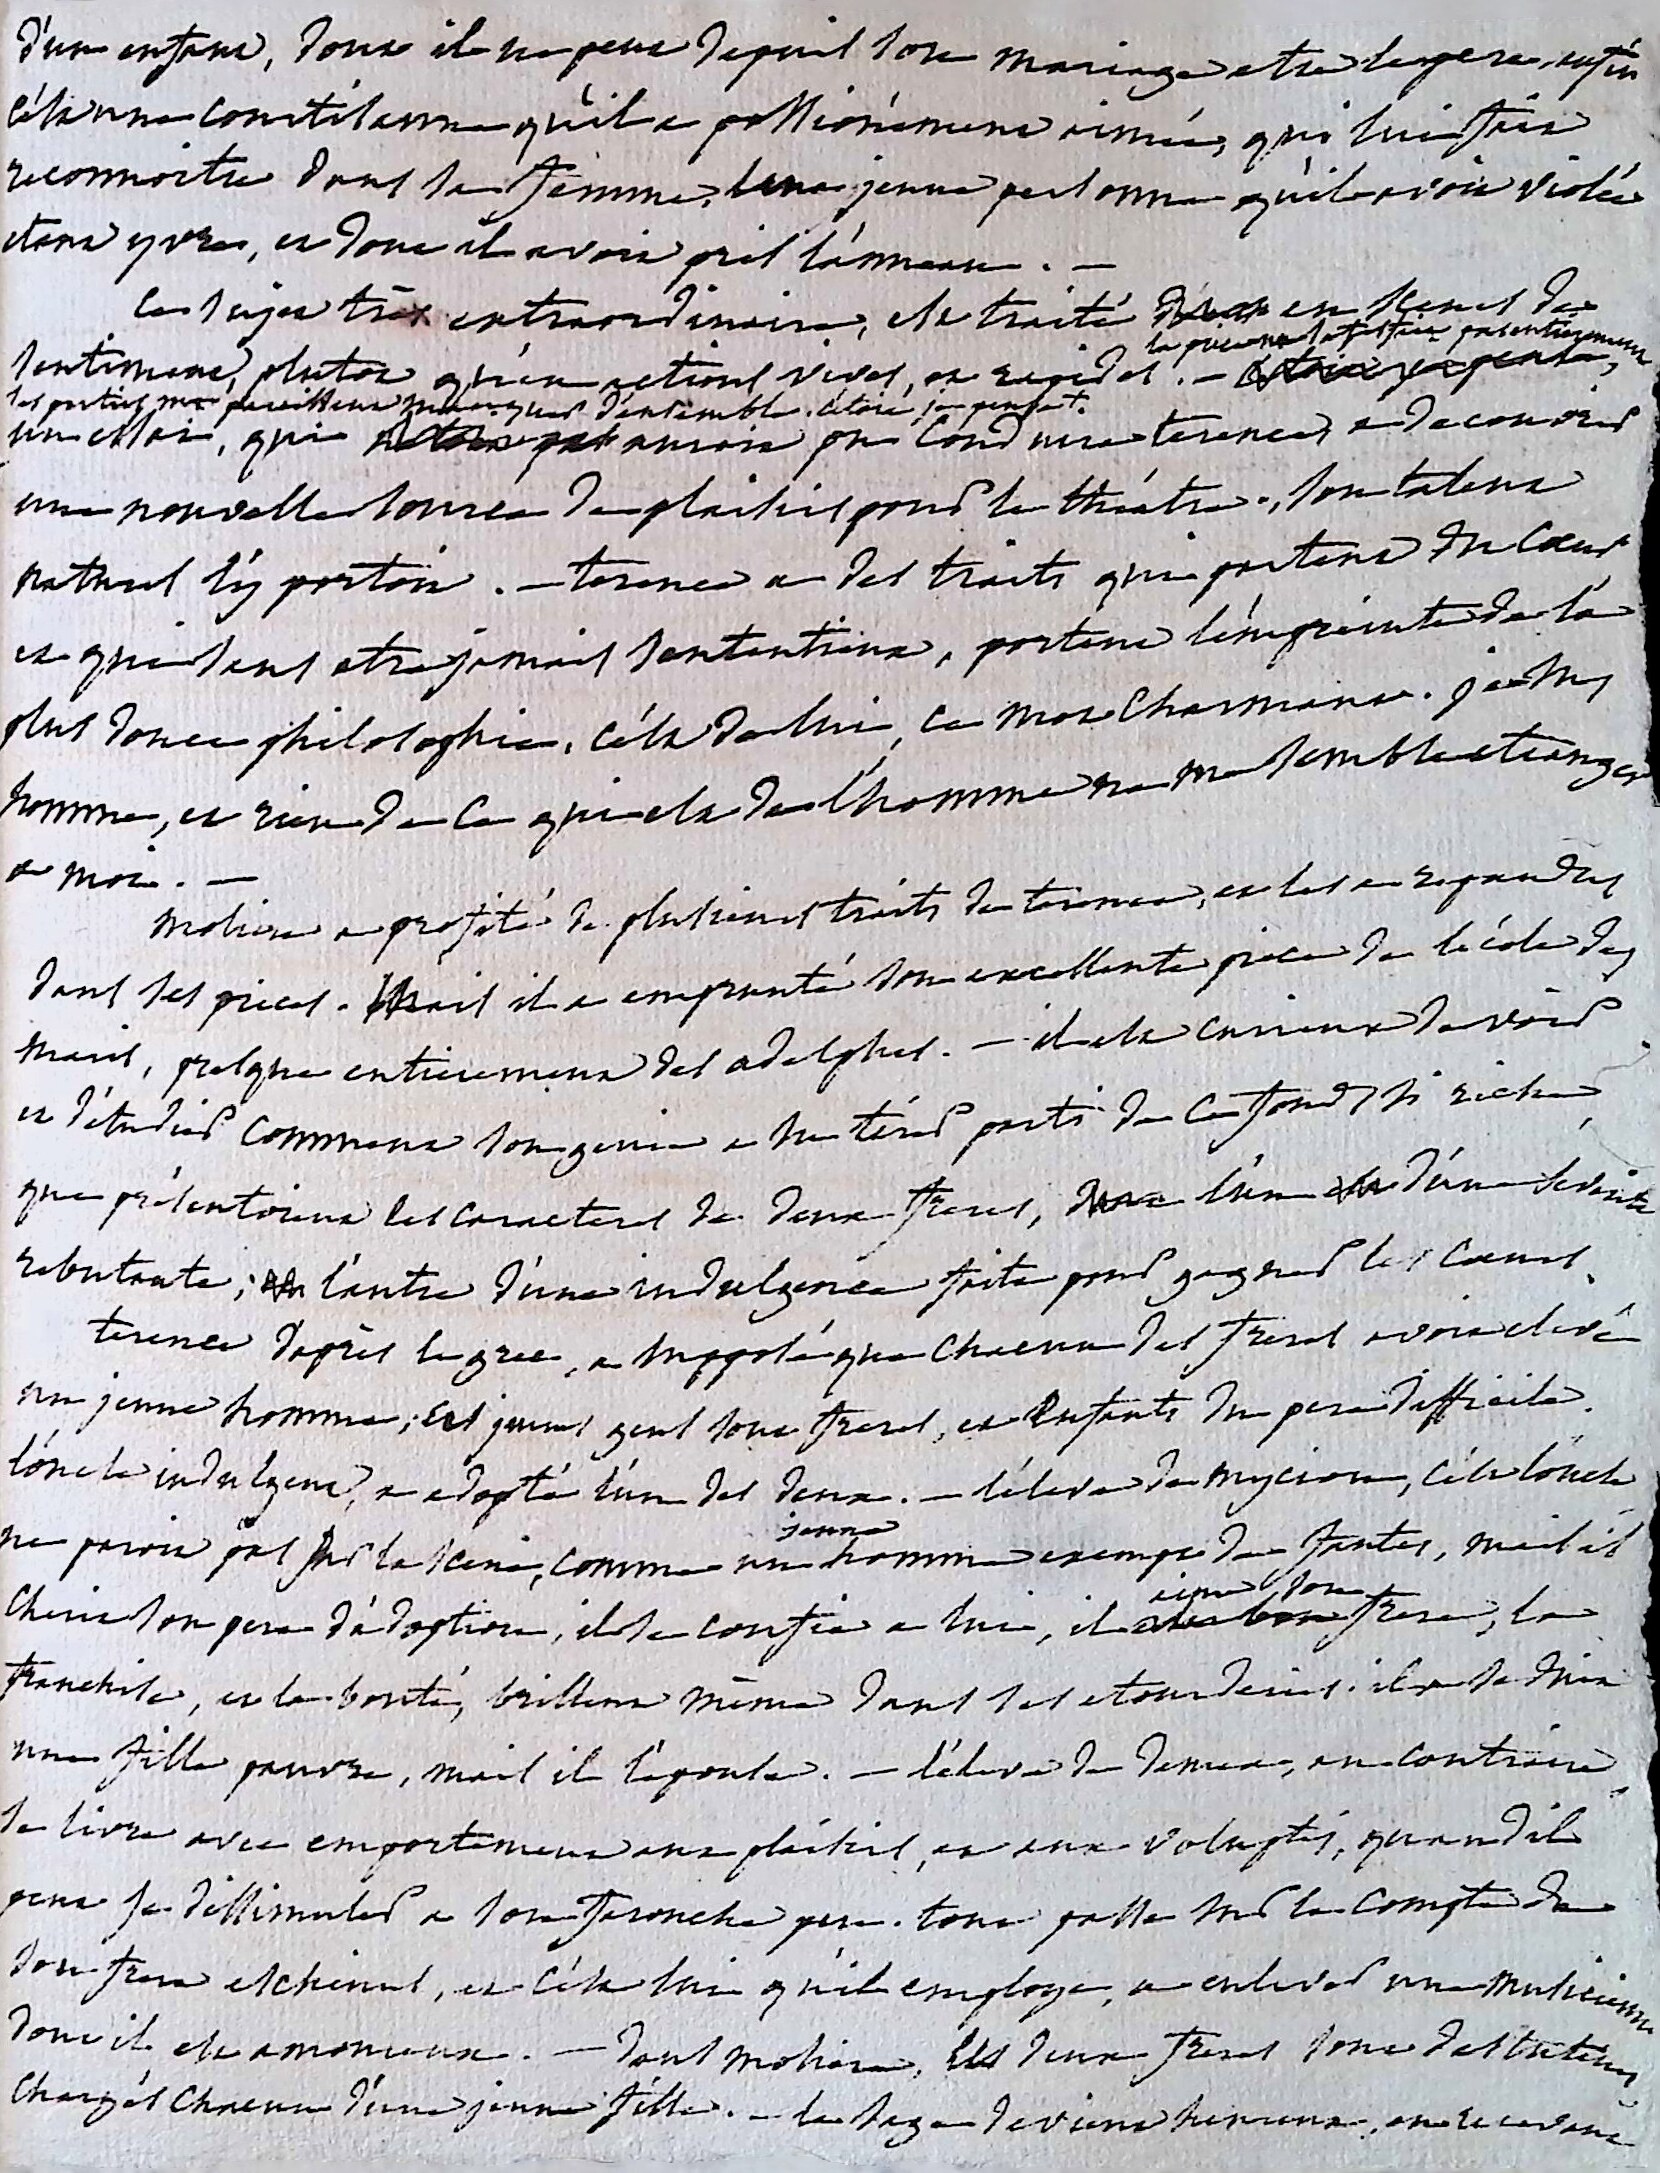 d'un enfant, dont il ne peut depuis son mariage etre le pere. enfin
c'est une courtisanne qu'il a passionément aimée, qui lui fait
reconnoitre dans sa femme, une jeune personne qu'il avoit violée
etant yvre, et dont il avoit pris l'anneau. —
ce sujet très extraordinaire, est traité en scenes de
sentiment, plutot qu'en actions vives, et rapides. —
la piece ne satisfait pas entierement
les parties me paroissent manquer d'ensemble. c'etoit, je pense,
un essai, qui auroit pu conduire terence, a decouvrir
une nouvelle source de plaisirs pour le théatre. son talent
naturel l'y portoit. — terence a des traits qui partent du cœur
et qui sans etre jamais sententieux, portent l'empreinte de la
plus douce philosophie. c'est de lui, ce mot charmant. je suis
homme, et rien de ce qui est de l'homme ne me semble etranger
a moi. —
moliere a profité de plusieurs traits de terence, et les a repandus
dans ses pieces. Mais il a emprunté son excellente piece de l'école des
maris, presque entierement des adelphes. — il est curieux de voir
et d'étudier comment son genie a su tirer parti de ce fonds si riche
que présentoient les caracteres de deux freres, l'un d'une severité
rebutante; l'autre d'une indulgence faite pour gagner les cœurs.
terence d'après le grec, a supposé que chacun des freres avoit elevé
un jeune homme; ces jeunes gens sont freres, et enfants du pere difficile.
l'oncle indulgent, a adopté l'un des deux. — l'éleve de mycion, c'est l'oncle
ne paroit pas sur la scene, comme un jeune homme exempt de fautes, mais il
cherit son pere d'adoption, il se confie a lui, il aime son frere, la
franchise, et la bonté, brillent même dans ses etourderies. il a séduit
une fille pauvre, mais il l'épouse. — l'éleve de demea, au contraire
se livre avec emportement aux plaisirs, et aux voluptés, quand il
peut se dissimuler a son farouche pere. tout passe sur le compte de
son frere eschinus, et c'est lui qu'il employe, a enlever une musicienne
dont il est amoureux. — dans moliere, les deux freres sont des tuteurs
chargés chacun d'une jeune fille. — le sage devient heureux, en recevant